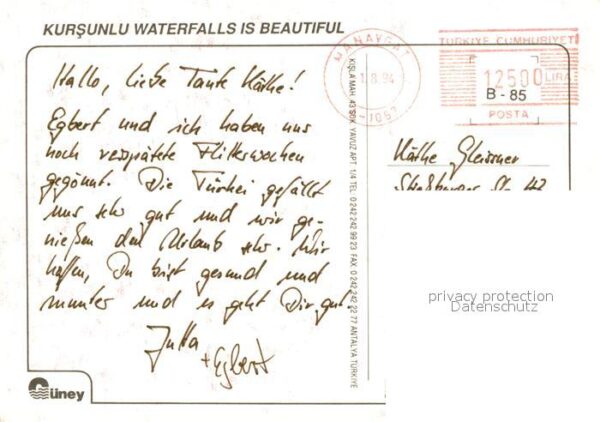 KURŞUNLU WATERFALLS IS BEAUTIFUL
Hallo, liebe Tante Käthe!
Egbert und ich haben uns
noch verspätete Flitterwochen
gegönnt. Die Türkei gefällt
uns sehr gut und wir ge-
nießen den Urlaub sehr. Wir
hoffen, Du bist gesund und
munter und es geht Dir gut.
Jutta
+ Egbert
Güney
KIŞLA MAH. 43 SOK. YAVUZ APT. 1/4 TEL: 0 242 242 99 23 FAX: 0 242 242 22 77 ANTALYA TÜRKİYE
MANAVGAT
1.8.94
TÜRKİYE CUMHURİYETİ
12500 LİRA
B - 85
POSTA
Käthe
42
privacy protection
Datenschutz